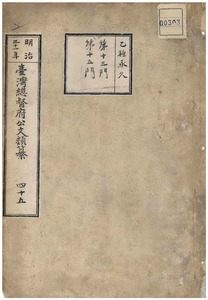 00303
乙種永久
第十三門
第十五門
明治
三十一年
臺灣總督府公文類纂
四十五